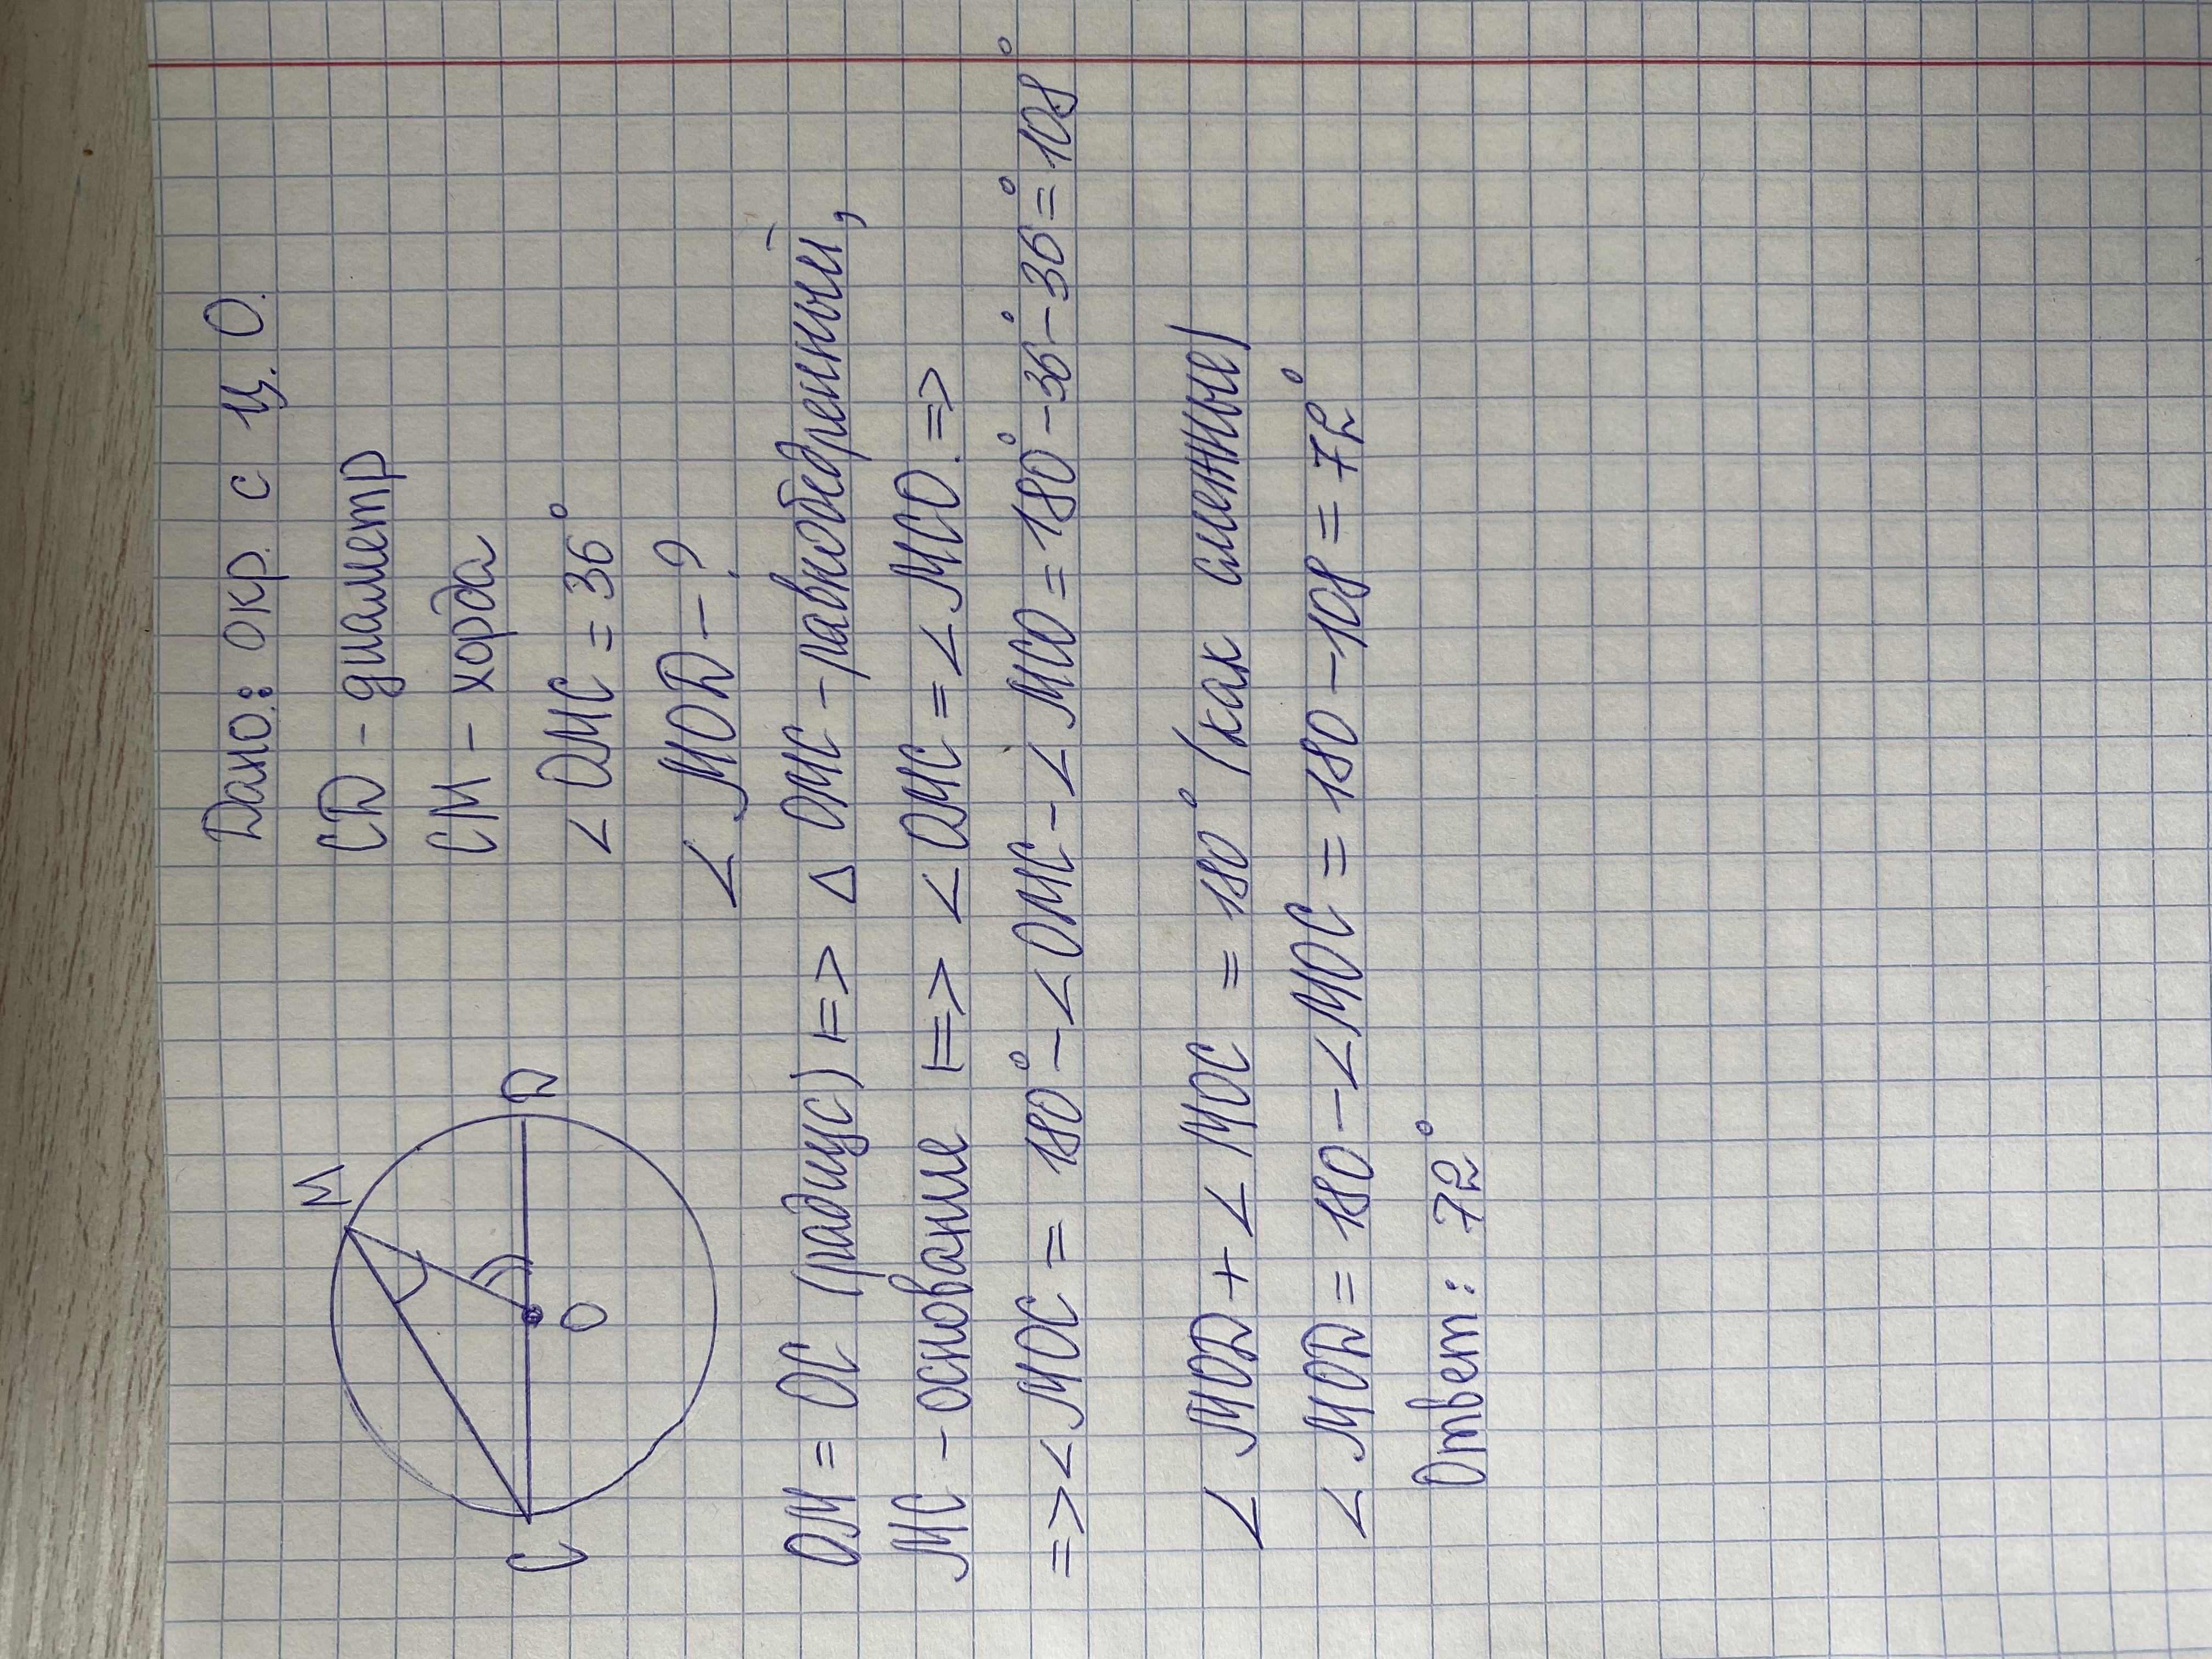 Дано: окр. с ц. О.
CD - диаметр
CM - хорда
∠OMC = 36°
∠MOD - ?
M
C
O
D
OM = OC (радиус) => △ OMC - равнобедренный,
MC - основание => ∠OMC = ∠MCO. =>
=> ∠MOC = 180° - ∠OMC - ∠MCO = 180° - 36° - 36° = 108°
∠MOD + ∠MOC = 180° (как смежные)
∠MOD = 180 - ∠MOC = 180 - 108 = 72°
Ответ: 72°